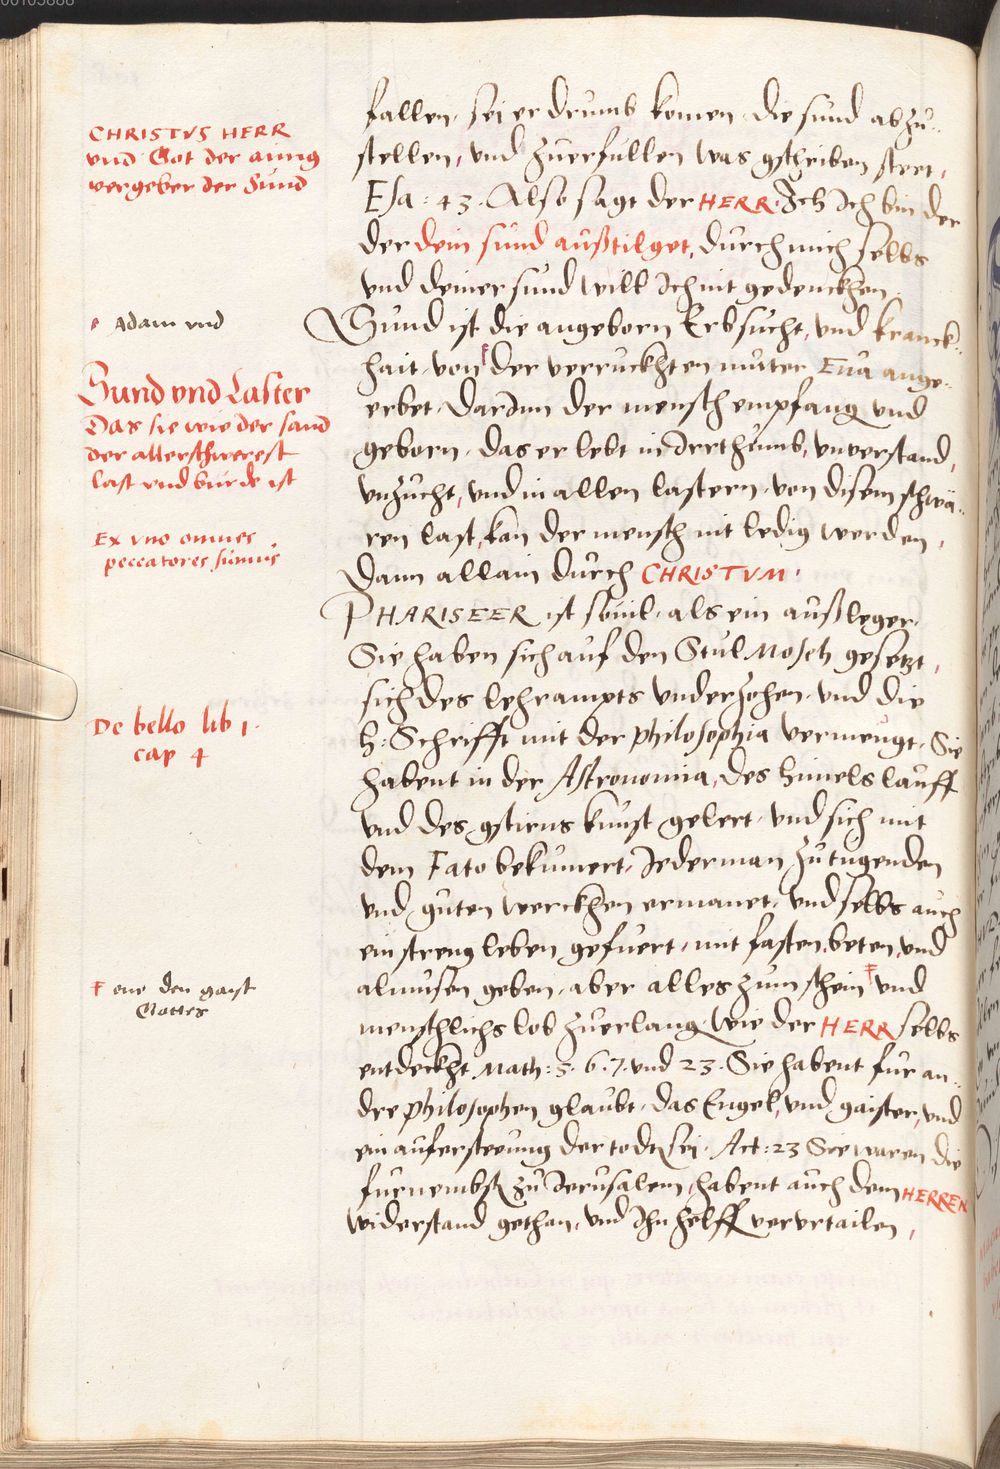 00105688
CHRISTVS HERR
vnd Got der ainig
vergeber der Sünd
fallen, sei er drumb komen, die sünd abzů„
stellen, vnd zůerfullen was gschriben stett,
Esa: 43. Also sagt der HERR. Ich Ich bin der
der dein sünd außtilget, durch mich selbs
vnd deiner sünd will Ich nit gedenckhen.
e Adam vnd
Sünd ist die angeborn Erbsucht, vnd kranck„
hait, von e der verruckhten můter Eua ange„
erbet, Darinn der mensch empfang vnd
geborn, das er lebt in Irrthumb, vnverstand,
vnzucht, vnd in allen lastern, von disem schwä„
ren last, kan der mensch nit ledig werden,
Dann allain durch CHRISTVM.
Sünd vnd Laster
Das sie wie der sand
der allerschwerest
last vnd bürde ist
Ex vno omnes
peccatores sumus.
PHARISEER ist souil, als ein außleger.
Sie haben sich auf den Stůl Moseh gesetzt,
sich des lehrampts vnderzohen, vnd die
h: Schrifft mit der philosophia vermengt, Sie
habent in der Astronomia, des himels lauff
vnd des gstirns kunst gelert, vnd sich mit
dem Fato bekumert, Iederman zů tugenden
vnd gůten werckhen ermanet, vnd selbs auch
ein streng leben gefuert, mit fasten, beten, vnd
almůsen geben, aber alles zum schein F vnd
menschlichs lob zůerlang, wie der HERR selbs
entdeckht Math: 5. 6. 7. vnd 23. Sie habent für an„
dre philosophen glaubt, das Engel, vnd gaister, vnd
ein aufersteeung der todt sei, Act: 23 Sie waren die
furnembst zů Ierusalem, habent auch dem HERREN
widerstand gethan, vnd Ihn helff vervrtailen,
De bello lib 1.
cap 4
F one den gaist
Gottes